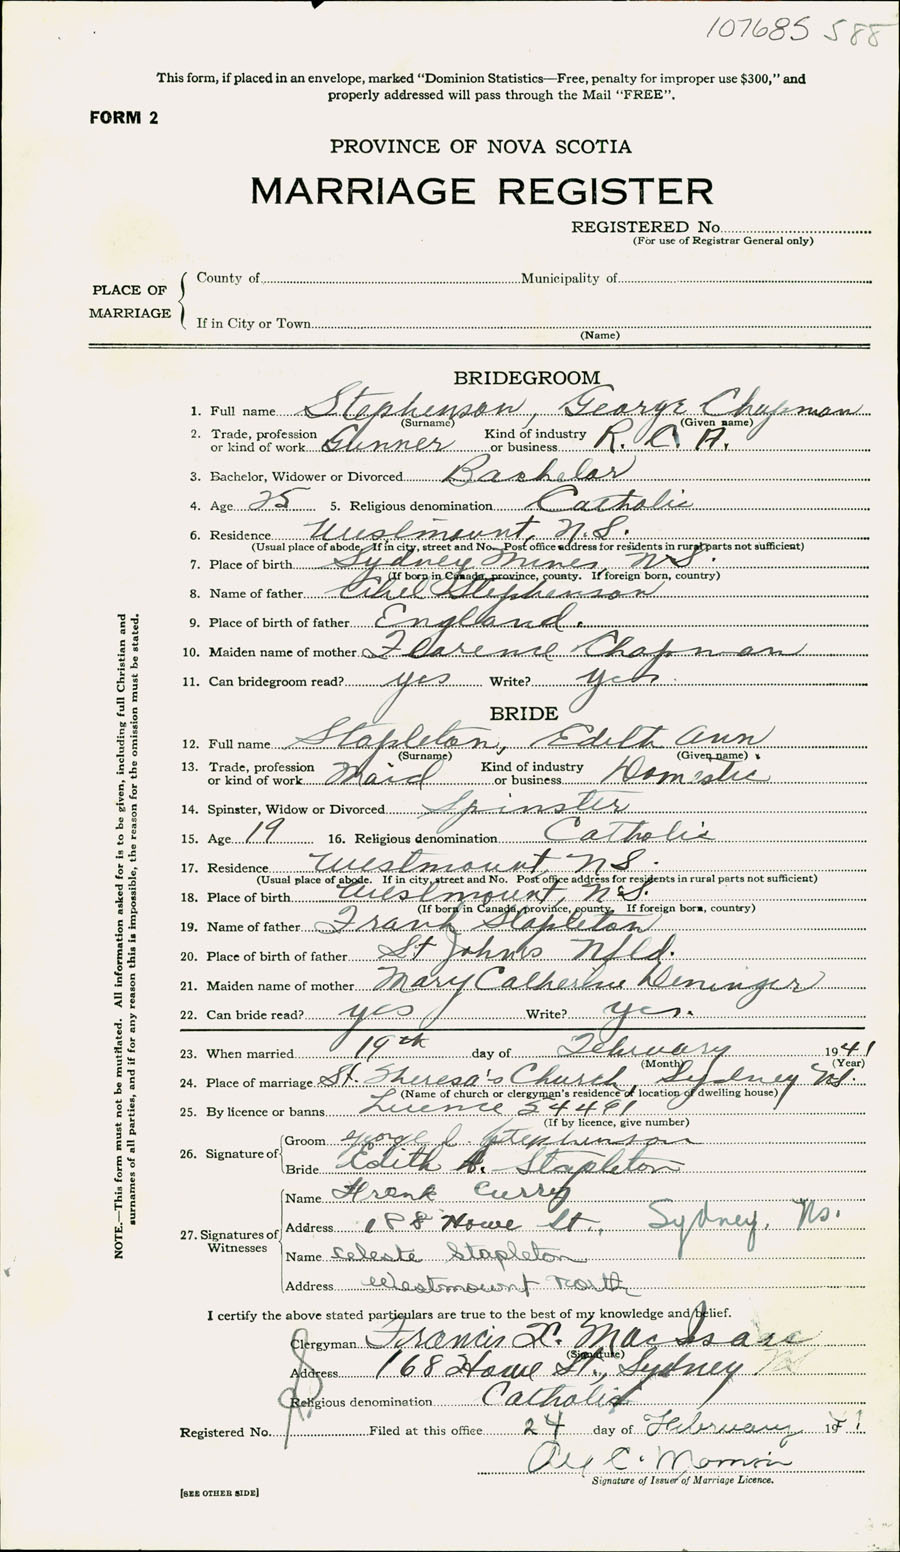 107685 588
This form, if placed in an envelope, marked "Dominion Statistics—Free, penalty for improper use $300," and
properly addressed will pass through the Mail "FREE".
FORM 2
PROVINCE OF NOVA SCOTIA
MARRIAGE REGISTER
REGISTERED No.
(For use of Registrar General only)
PLACE OF MARRIAGE
County of Municipality of
If in City or Town
(Name)
BRIDEGROOM
1. Full name Stephenson, George Chapman
(Surname) (Given name)
2. Trade, profession or kind of work Gunner Kind of industry or business R. C. A.
3. Bachelor, Widower or Divorced Bachelor
4. Age 25 5. Religious denomination Catholic
6. Residence Westmount, N.S.
(Usual place of abode. If in city, street and No. Post office address for residents in rural parts not sufficient)
7. Place of birth Sydney Mines, N.S.
(If born in Canada, province, county. If foreign born, country)
8. Name of father Stephenson
9. Place of birth of father England.
10. Maiden name of mother Florence Chapman
11. Can bridegroom read? yes Write? yes
BRIDE
12. Full name Stapleton, Edith Ann
(Surname) (Given name)
13. Trade, profession or kind of work Maid Kind of industry or business Domestic
14. Spinster, Widow or Divorced Spinster
15. Age 19 16. Religious denomination Catholic
17. Residence Westmount, N.S.
(Usual place of abode. If in city, street and No. Post office address for residents in rural parts not sufficient)
18. Place of birth Westmount, N.S.
(If born in Canada, province, county. If foreign born, country)
19. Name of father Frank Stapleton
20. Place of birth of father St John's Nfld.
21. Maiden name of mother Mary Catherine Deninger
22. Can bride read? yes Write? yes.
23. When married 19th day of February 1941
(Month) (Year)
24. Place of marriage St. Theresa's Church, Sydney N.S.
(Name of church or clergyman's residence of location of dwelling house)
25. By licence or banns Licence 54491
(If by licence, give number)
26. Signature of Groom George C. Stephenson
Bride Edith A. Stapleton
27. Signatures of Witnesses
Name Frank Curry
Address 188 Howe St., Sydney, N.S.
Name Celeste Stapleton
Address Westmount North
I certify the above stated particulars are true to the best of my knowledge and belief.
Clergyman Francis X. MacIsaac
(Signature)
Address 168 Howe St., Sydney NS
Religious denomination Catholic
Registered No. Filed at this office 24 day of February 1941
Signature of Issuer of Marriage Licence.
[SEE OTHER SIDE]
NOTE.—This form must not be mutilated. All information asked for is to be given, including full Christian and
surnames of all parties, and if for any reason this is impossible, the reason for the omission must be stated.